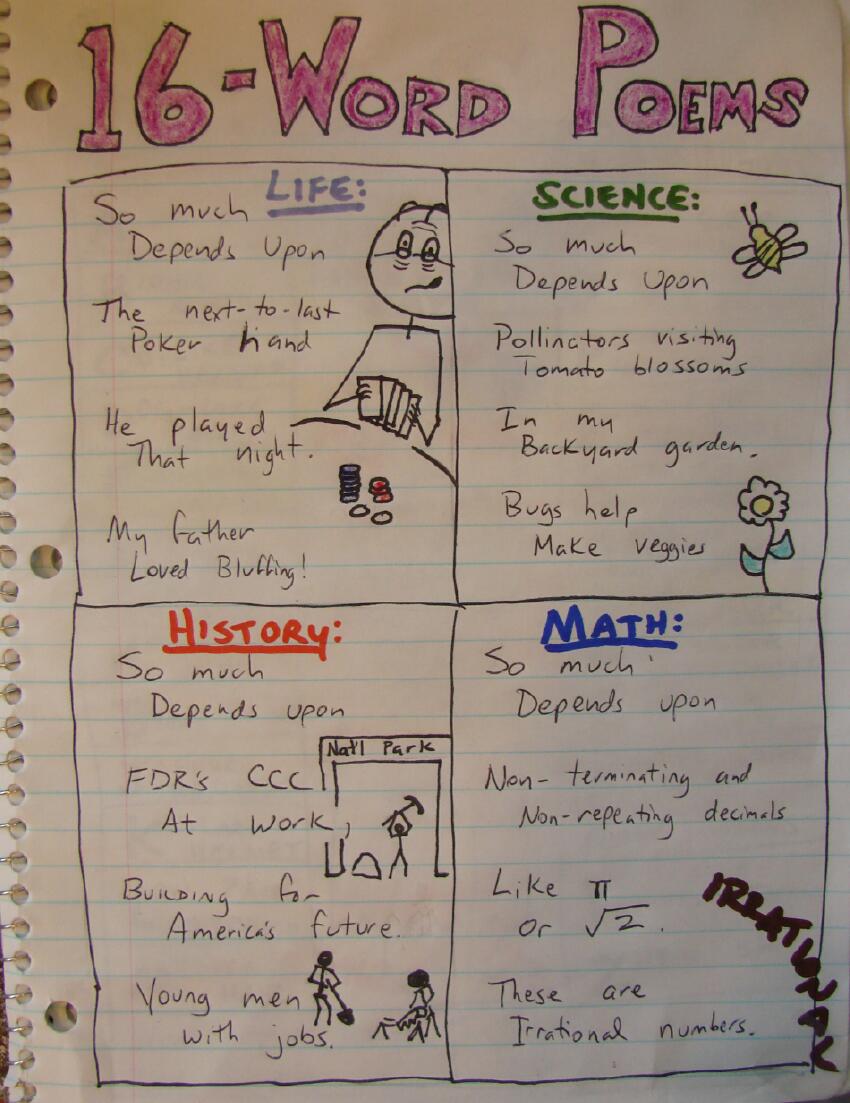 16-Word Poems
LIFE:
So much
Depends Upon
The next-to-last
Poker hand
He played
That night.
My father
Loved Bluffing!
SCIENCE:
So much
Depends Upon
Pollinators visiting
Tomato blossoms
In my
Backyard garden.
Bugs help
Make veggies
HISTORY:
So much
Depends upon
FDR's CCC
At work,
Building for
America's future.
Young men
with jobs.
Nat'l Park
MATH:
So much
Depends upon
Non-terminating and
Non-repeating decimals
Like π
or √2.
These are
Irrational numbers.
IRRATIONAL